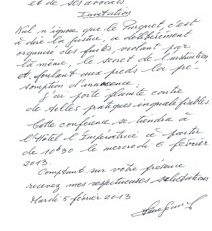 et de ses avocats
Invitation
Nul n'ignore que le Parquet, c'est
à dire la justice, a délibérément
organisé des fuites violant par
là même, le secret de l'instruction
et foulant aux pieds la pré
somption d'innocence.
J'ai porté plainte contre
de telles pratiques inqualifiables
Cette conférence se tiendra à
l'Hôtel l'Impératrice à partir
de 10H30 le mercredi 6 février
2013.
Comptant sur votre présence
recevez mes respectueuses salutations
Mardi 5 février 2013